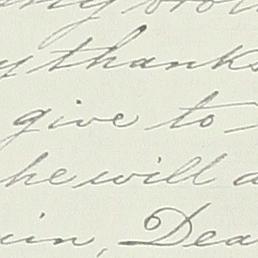 my
thanks
give to
he will a
in, Dea